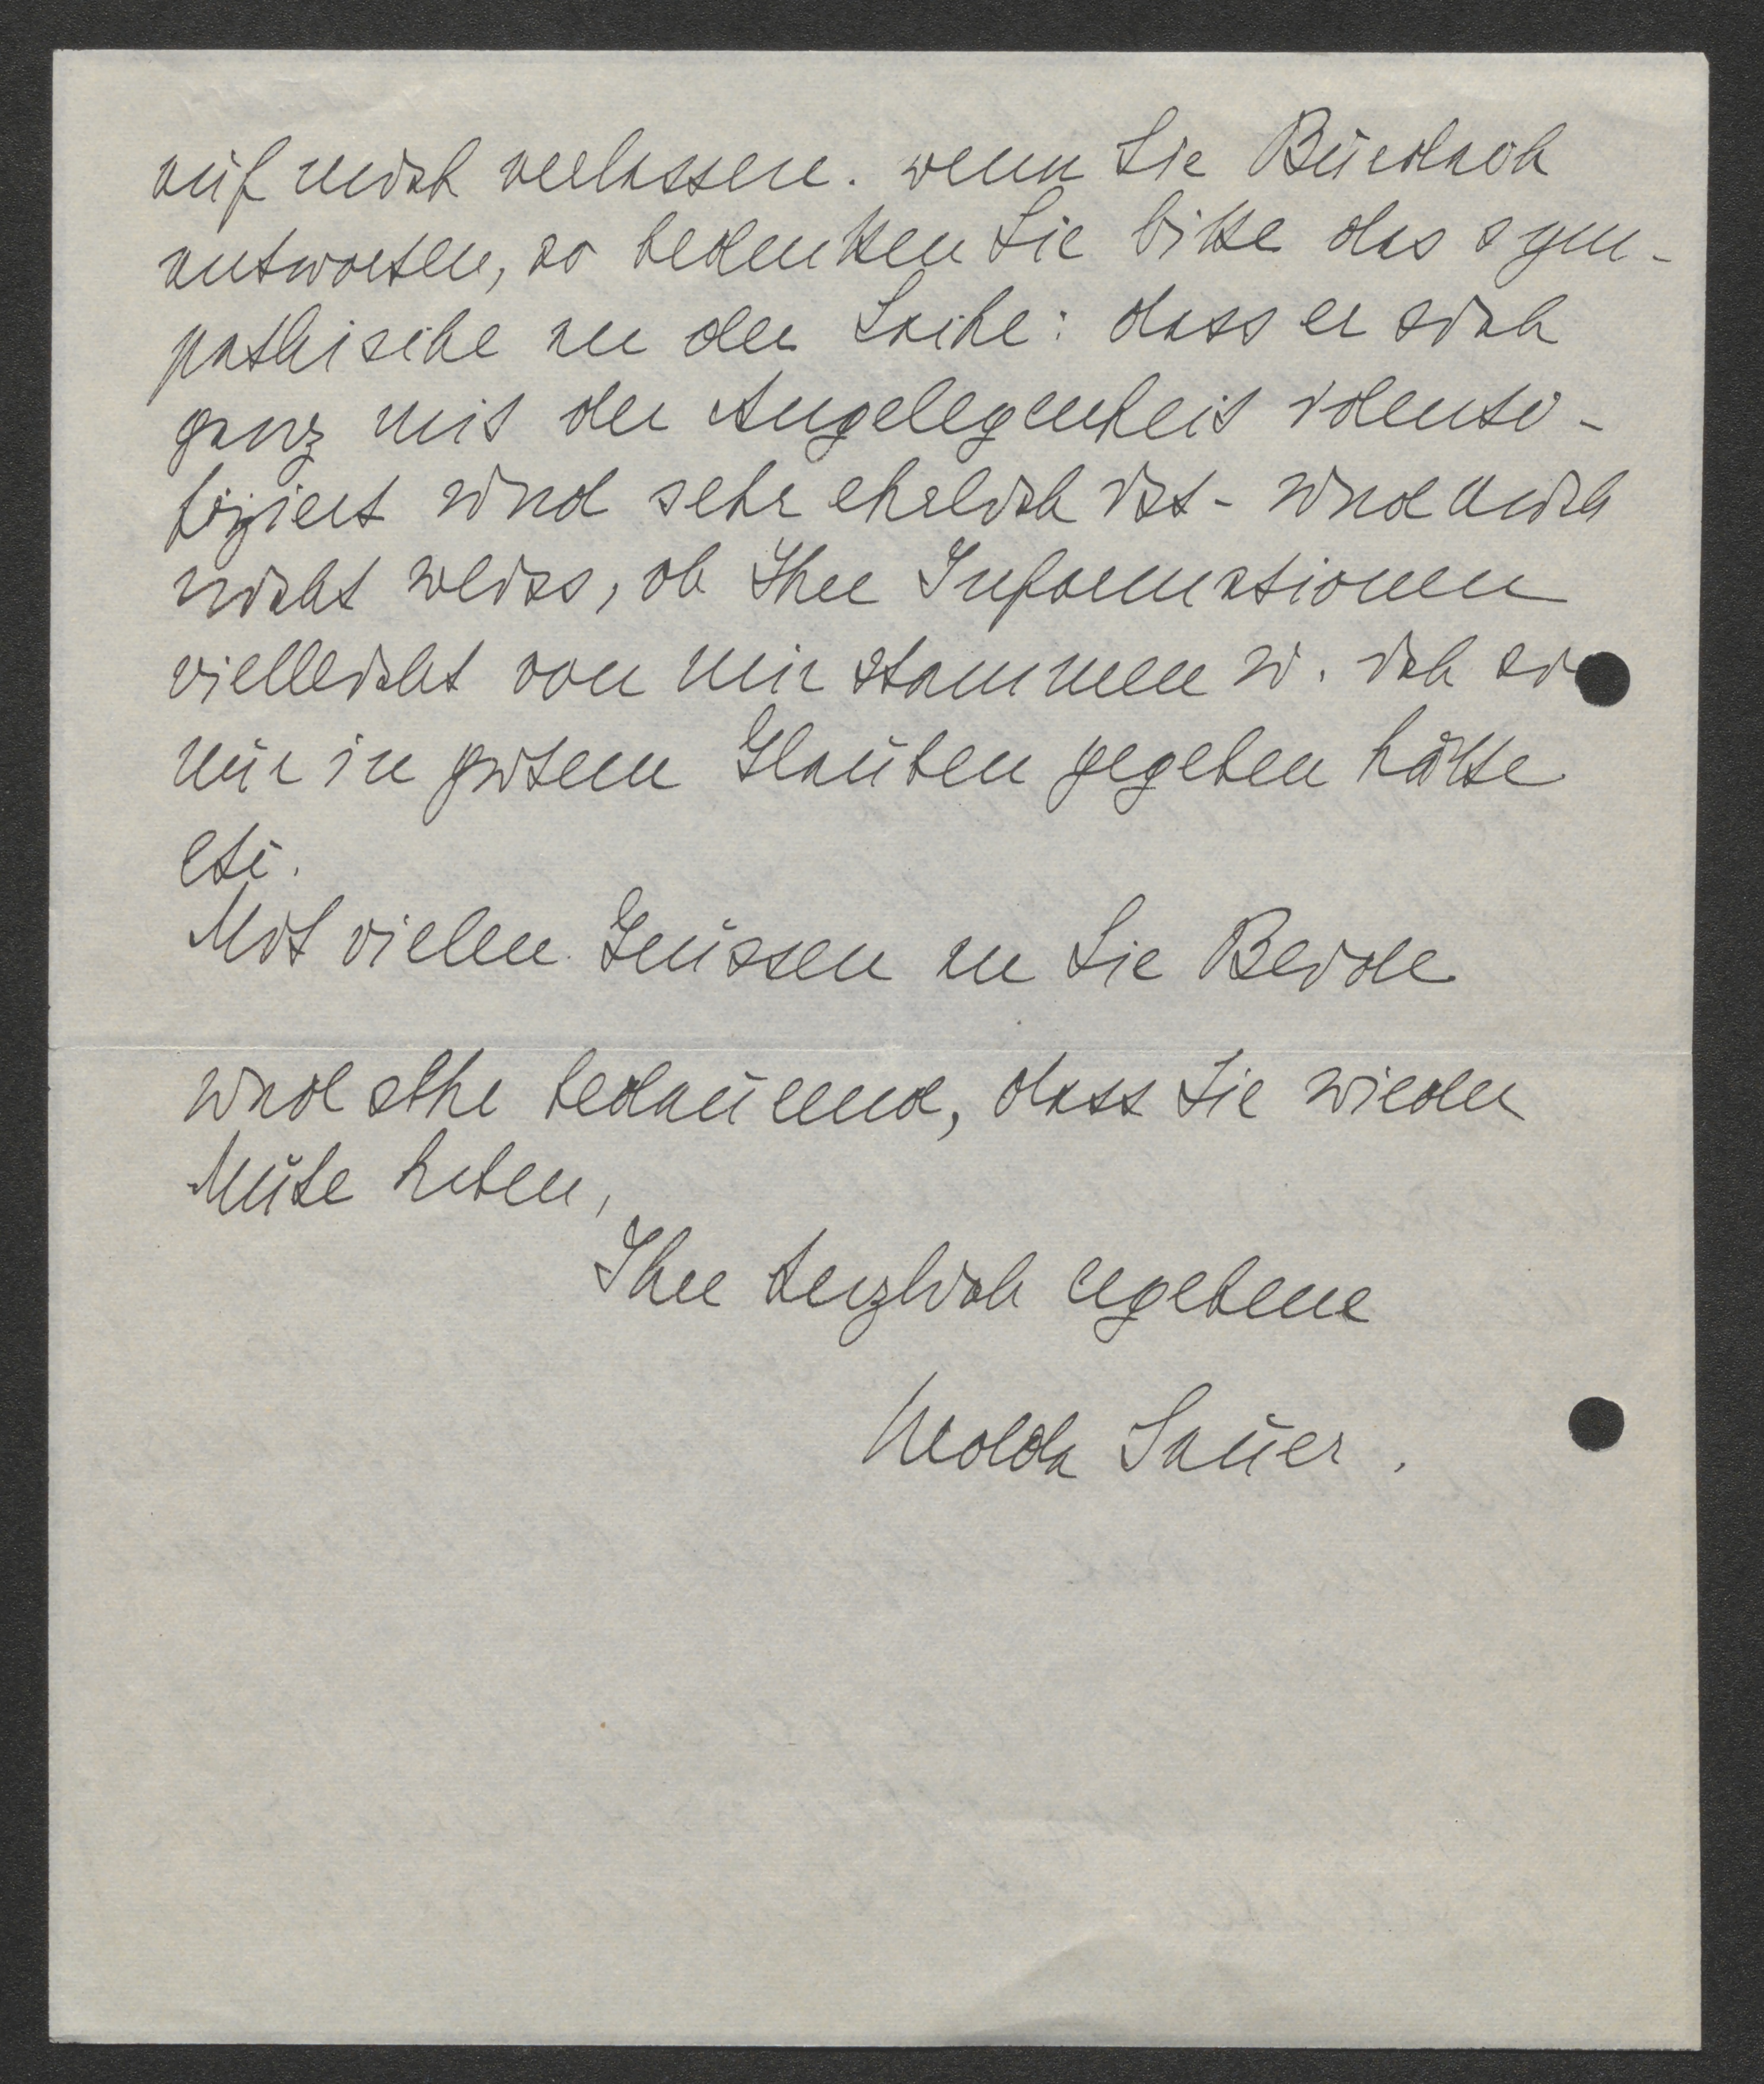 auf mich verlassen. Wenn Sie Burdach
antworten, so bedenken Sie bitte das sym-
pathische an der Sache: dass er sich
ganz mit der Angelegenheit identi-
fiziert und sehr ehrlich ist - und auch
nicht weiss, ob Ihre Informationen
vielleicht von mir stammen u. ich sie
nur in gutem Glauben gegeben hätte
etc.
Mit vielen Grüssen an Sie Beide
und sehr bedauernd, dass Sie wieder
Mühe haben,
Ihre herzlich ergebene
Sauer.